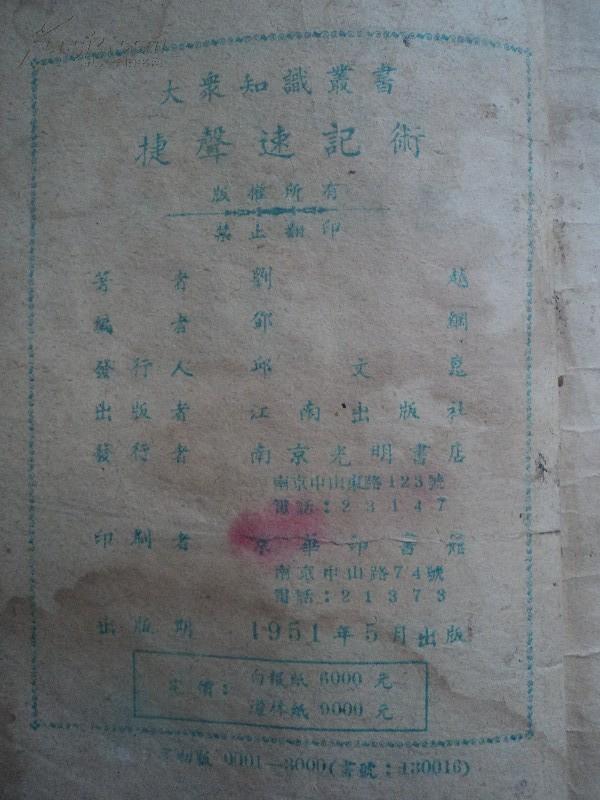 大衆知識叢書
捷聲速記術
版權所有
禁止翻印
著者 劉越
編者 鄧綱
發行人 邱文崑
出版者 江南出版社
發行者 南京光明書店
南京中山東路123號
電話:23147
印刷者 京華印書館
南京中山路74號
電話:21373
出版期 1951年5月出版
定價: 白報紙 6000 元
道林紙 9000 元
初版 0001—3000(書號:130016)